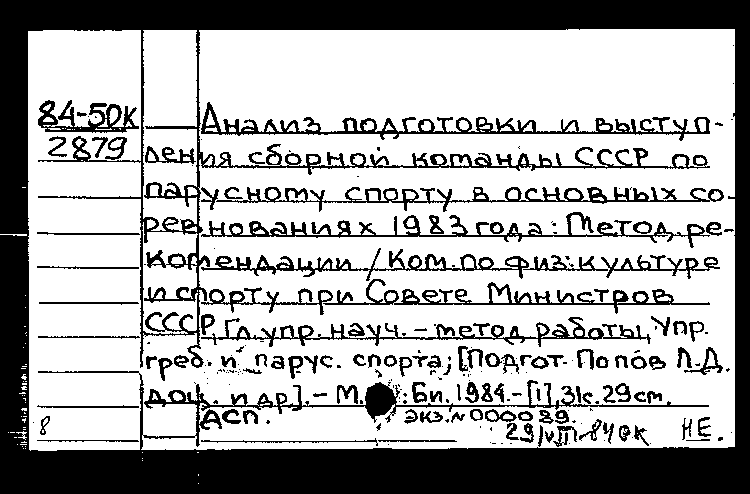 84-50К
2879
Анализ подготовки и выступ-
ления сборной команды СССР по
парусному спорту в основных со-
ревнованиях 1983 года: Метод. ре-
комендации / Ком. по физ. культуре
и спорту при Совете Министров
СССР, Гл. упр. науч.-метод. работы, Упр.
греб. и парус. спорта; [Подгот. Попов Л.Д.
доц. и др]. - М. : Би. 1984. - [1], 31с. 29см.
ДСП. экз. N 000089.
8 29/VIII-84 ОК НЕ.